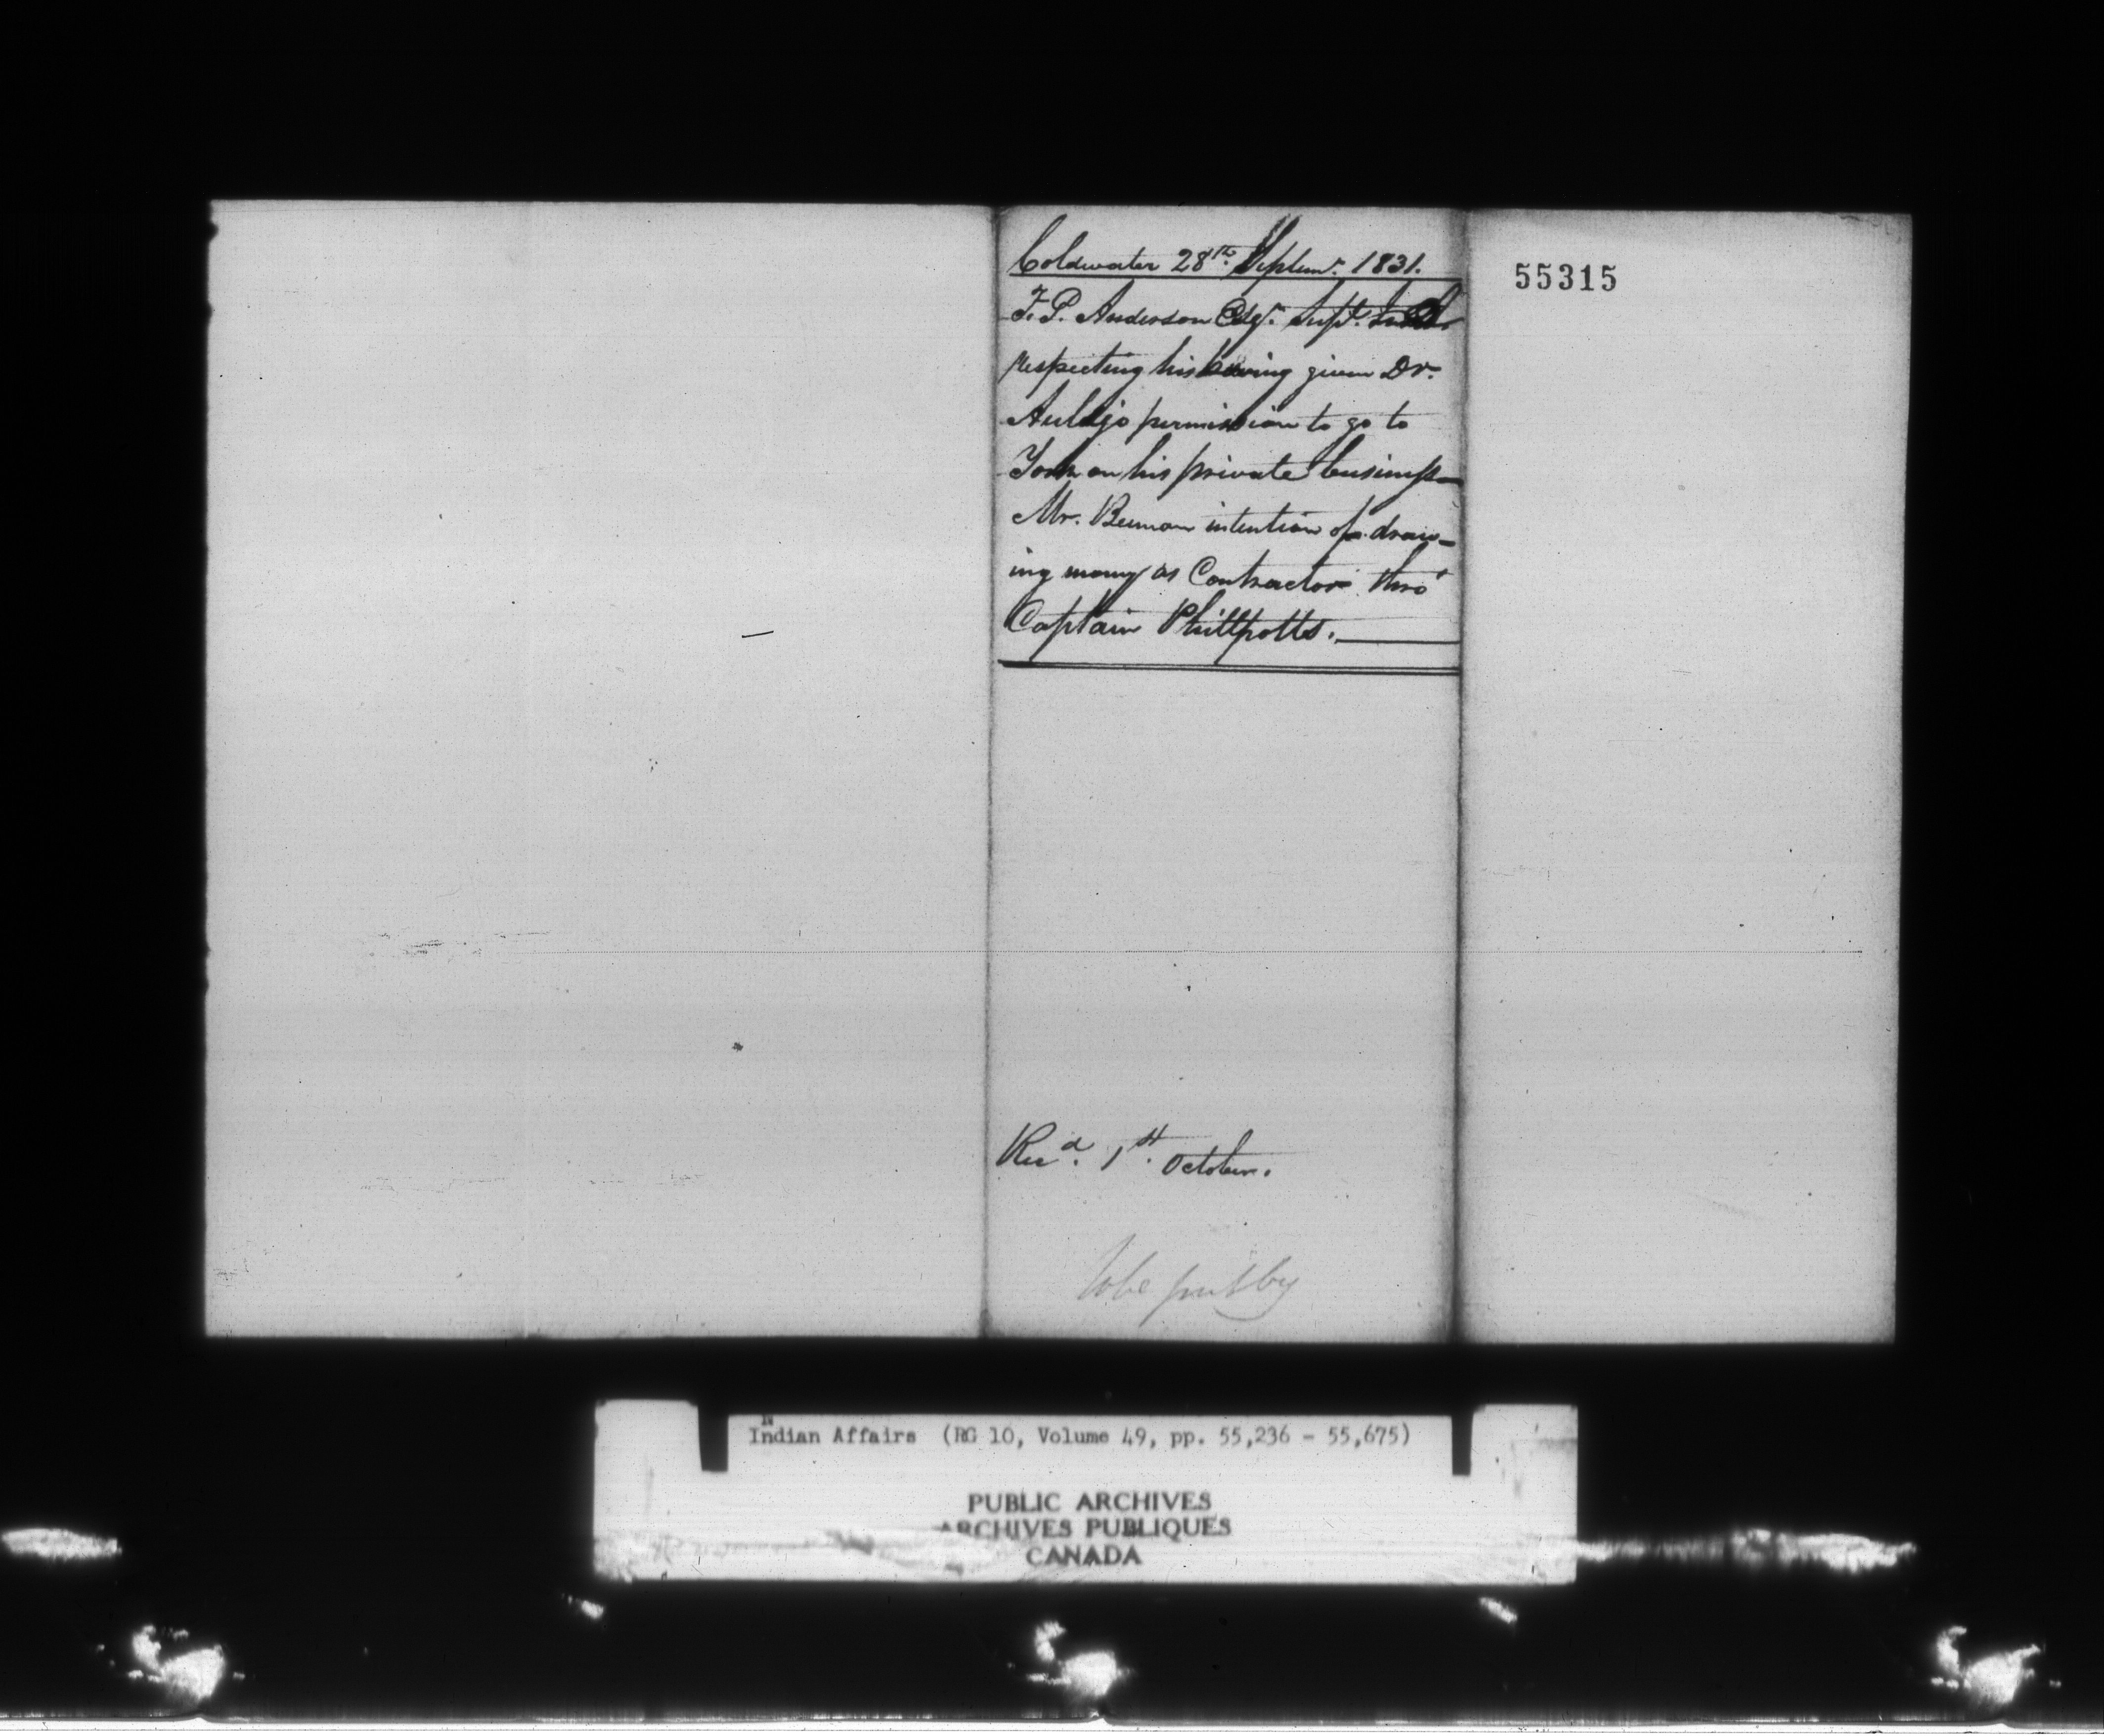 Coldwater 28th. Septemr. 1831.
T. P. Anderson Esqr. Supt.
respecting his having given Dr.
Auldjo permission to go to
York on his private business
Mr. Beeman intention of draw-
ing money as Contractor thro'
Captain Phillpotts.
55315
Recd. 1st. October.
To be put by
Indian Affairs (RG 10, Volume 49, pp. 55,236 - 55,675)
PUBLIC ARCHIVES
ARCHIVES PUBLIQUES
CANADA